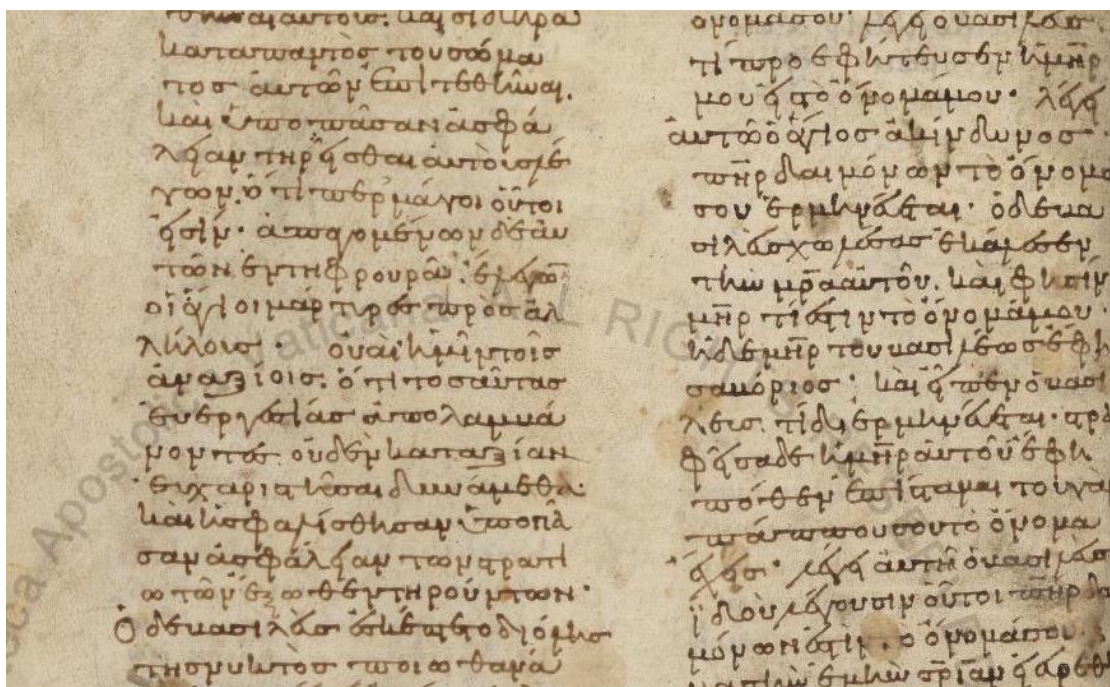 αὐτοῖς· καὶ σίδηρα
κατα παντὸς τοῦ σώμα
τος αὐτῶν ἐπιτεθῆναι.
καὶ ὑπο πᾶσαν ἀσφά
λειαν τηρεῖσθαι αὐτοὺς λέ
γων. ὅτι περ μάγοι οὗτοι
εἰσίν· ἀπαγομένων δὲ αὐ
τῶν ἐν τῆ φρουρᾶ. ἔλεγον
οἱ ἅγιοι μάρτυρες πρὸς ἀλ
λήλοις· οὐαὶ ἡμῖν τοῖς
ἀναξίοις. ὅτι τοσαύτας
εὐεργεσίας ἀπολαμβά
νοντες. οὐδὲν καταξίαν
εὐχαριστῆσαι δυνάμεθα·
καὶ ἠσφαλίσθησαν ὑπο πᾶ
σαν ἀσφάλειαν τῶν στρατι
ωτῶν ἔξωθεν τηρούντων·
Ὁ δε βασιλεὺς ἐσκέπτετο δι ὅλης
τῆς νυκτὸς ποίω θανά
ὄνομα σου· λέγει ὁ βασιλεὺς
τί προεφήτευσεν ἡ μηρ
μου εἰς τὸ ὄνομά μου· λέγει
αὐτῶ ὁ ἅγιος ἀκίνδυνος
πηρ δαιμόνων τὸ ὄνομα
σου ἑρμηνεύεται· ὁ δε βα
σιλεὺς χωλέσας ἐκάλεσεν
τὴν μρα αὐτοῦ. καὶ φησίν
μηρ τί ἐστιν τὸ ὄνομά μου·
ἡ δε μηρ τοῦ βασιλέως ἔφη
σαβόριος· καὶ εἶπεν ὁ βασι
λεὺς. τί διερμηνεύεται· στρα
φεῖσα δὲ ἡ μηρ αὐτοῦ ἔφη
πόθεν ἐπίσταμαι τοῦ γὰρ
πάππου σου τὸ ὄνομα
ἔχεις· λέγει αὐτῆ ὁ βασιλεὺς
ἰδοὺ λέγουσιν οὗτοι πηρ δαι
μόνων ἐστιν τὸ ὄνομά σου.
κατὰ τὴν ἐμὴν σρίαν